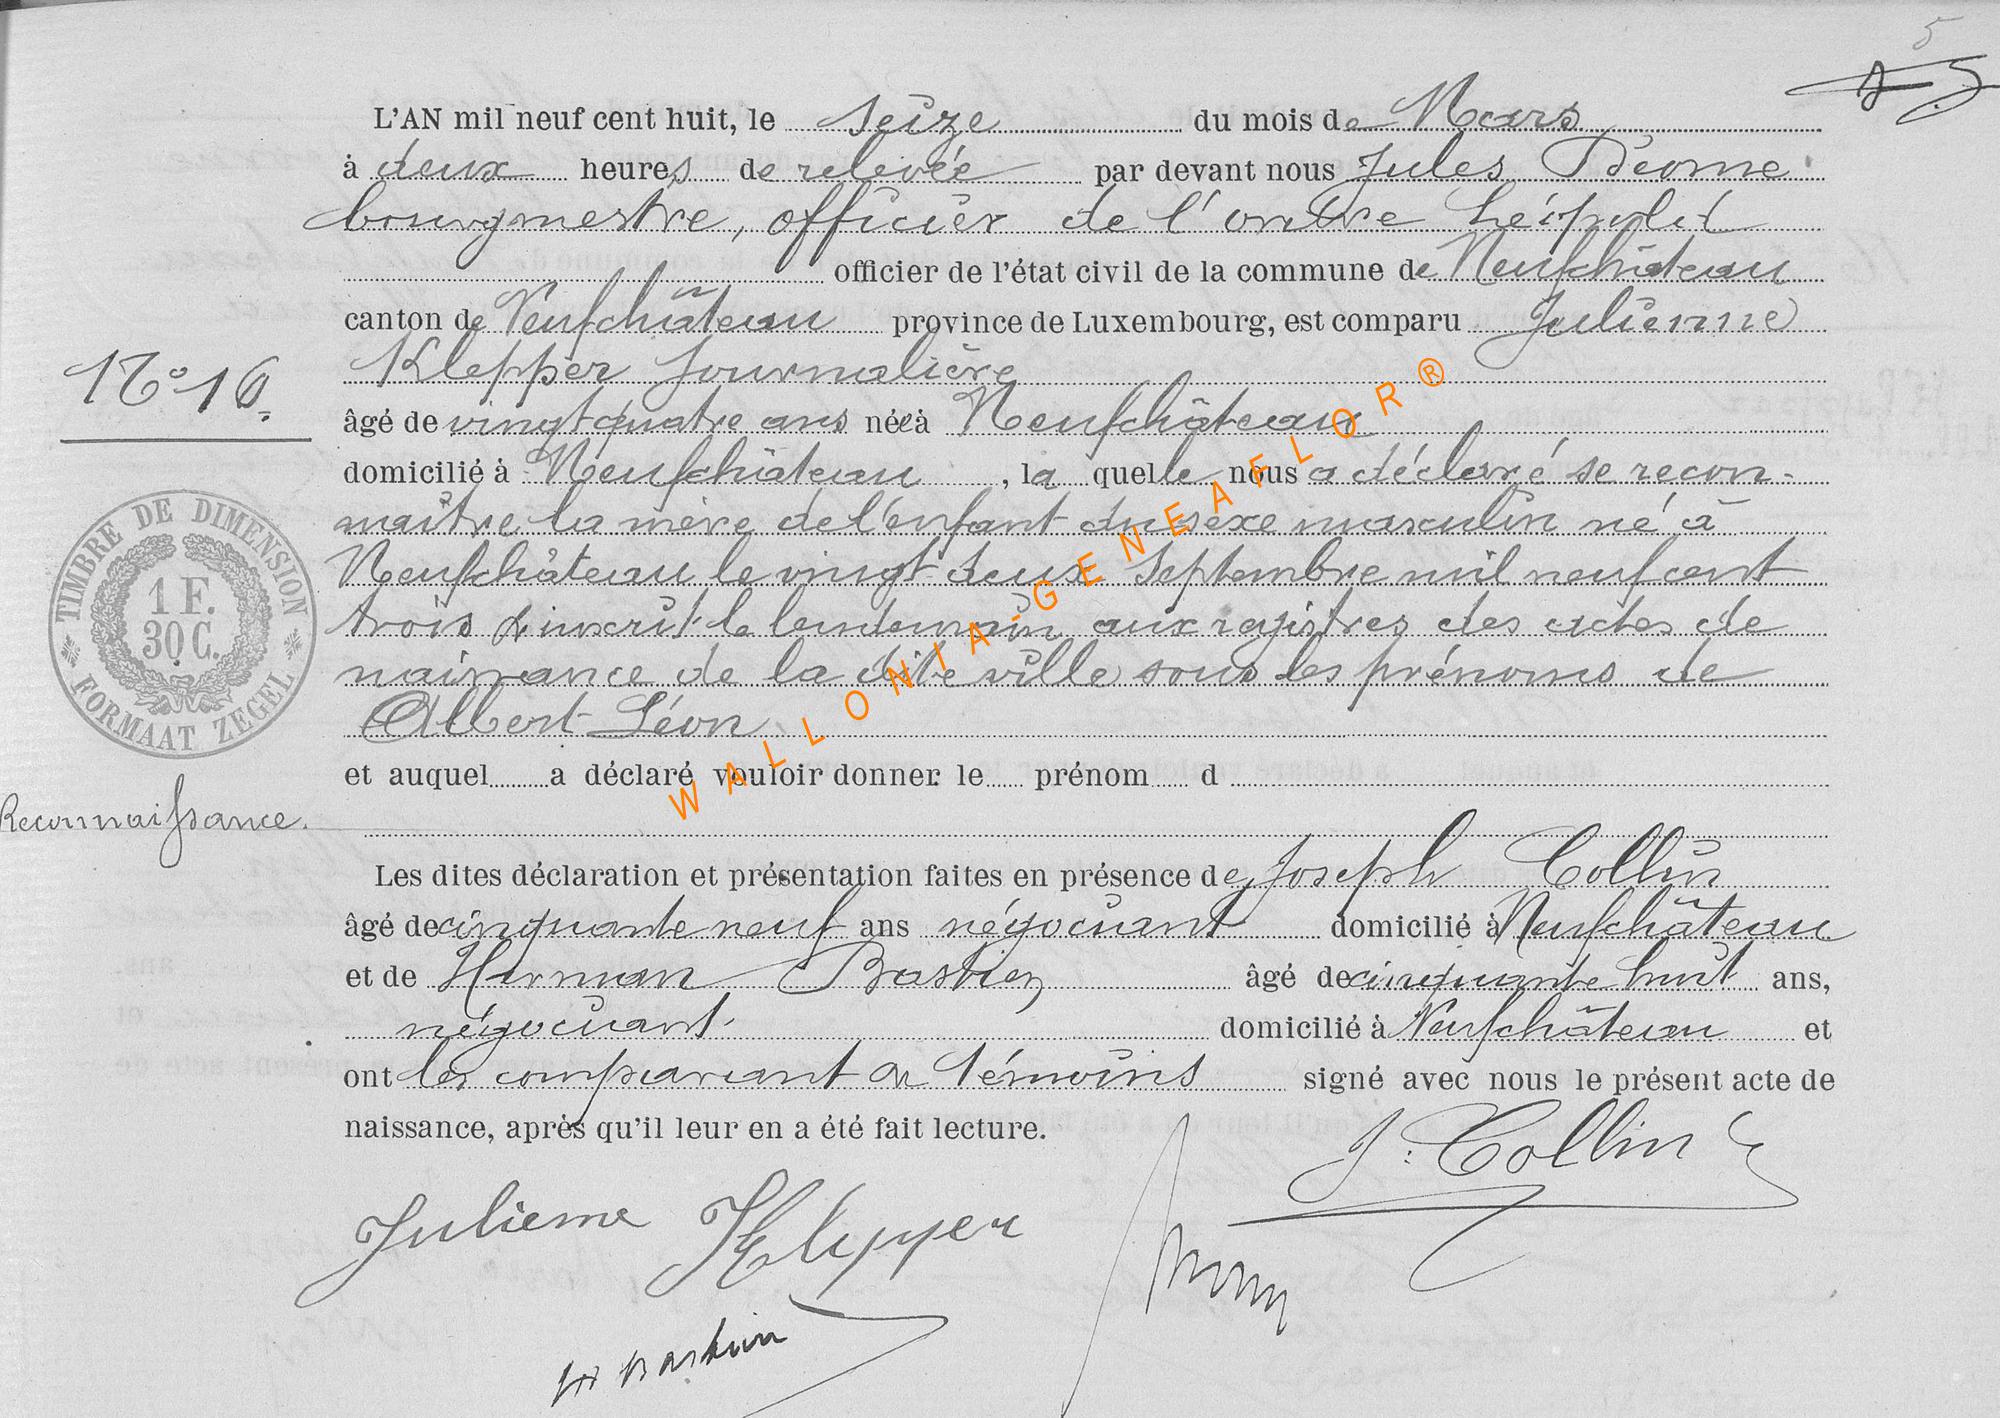 5
L'AN mil neuf cent huit, le seize du mois de Mars
à deux heures de relevée par devant nous Jules
bourgmestre, officier de l'ordre Léopold
officier de l'état civil de la commune de Neufchâteau
canton de Neufchâteau province de Luxembourg, est comparu Julienne
Klepper Journalière
N° 16.
âgé de vingt quatre ans née à Neufchâteau
domicilié à Neufchâteau, la quelle nous a déclaré se recon-
naître la mère de l'enfant du sexe masculin né à
Neufchâteau le vingt-deux Septembre mil neuf cent
trois & inscrit le lendemain aux registres des actes de
naissance de la dite ville sous les prénoms de
Albert Léon
TIMBRE DE DIMENSION
1 F.
30 C.
FORMAAT ZEGEL
et auquel a déclaré vouloir donner le prénom d
Reconnaissance.
Les dites déclaration et présentation faites en présence de Joseph Collin
âgé de cinquante neuf ans négociant domicilié à Neufchâteau
et de Herman Bastien âgé de cinquante huit ans,
négociant domicilié à Neufchâteau et
ont les comparant & témoins signé avec nous le présent acte de
naissance, après qu'il leur en a été fait lecture.
J. Collin
Julienne Klepper
H Bastien
WALLONIA-GENEAFLOR®